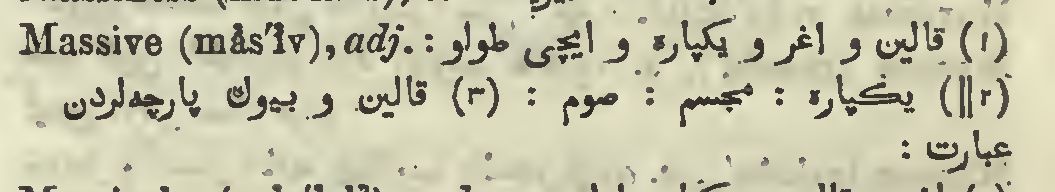 Massive (măs′ĭv), adj. : (١) قالین و اغر و یکپاره و ایچی طولو
(٢‖) یکپاره : مجسم : صوم : (٣) قالین و بیوك پارچه‌لردن
عبارت :